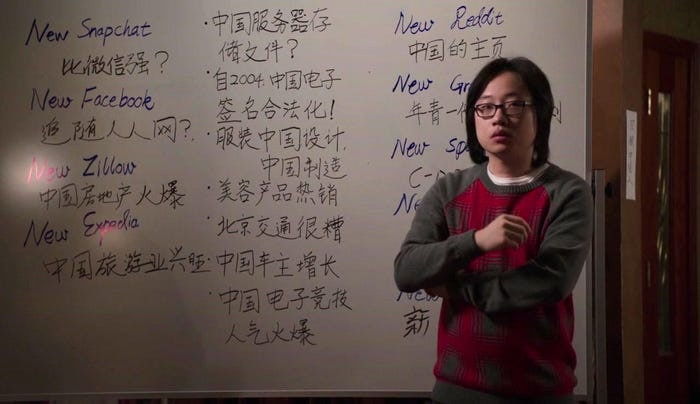 New Snapchat
比微信强?
New Facebook
追随人人网?
New Zillow
中国房地产火爆
New Expedia
中国旅游业兴旺
·中国服务器存
储文件?
·自2004,中国电子
签名合法化!
·服装中国设计,
中国制造
·美容产品热销
·北京交通很糟
·中国车主增长
·中国电子竞技
人气火爆
New Reddit
中国的主页
New
年青一
New
C-
新